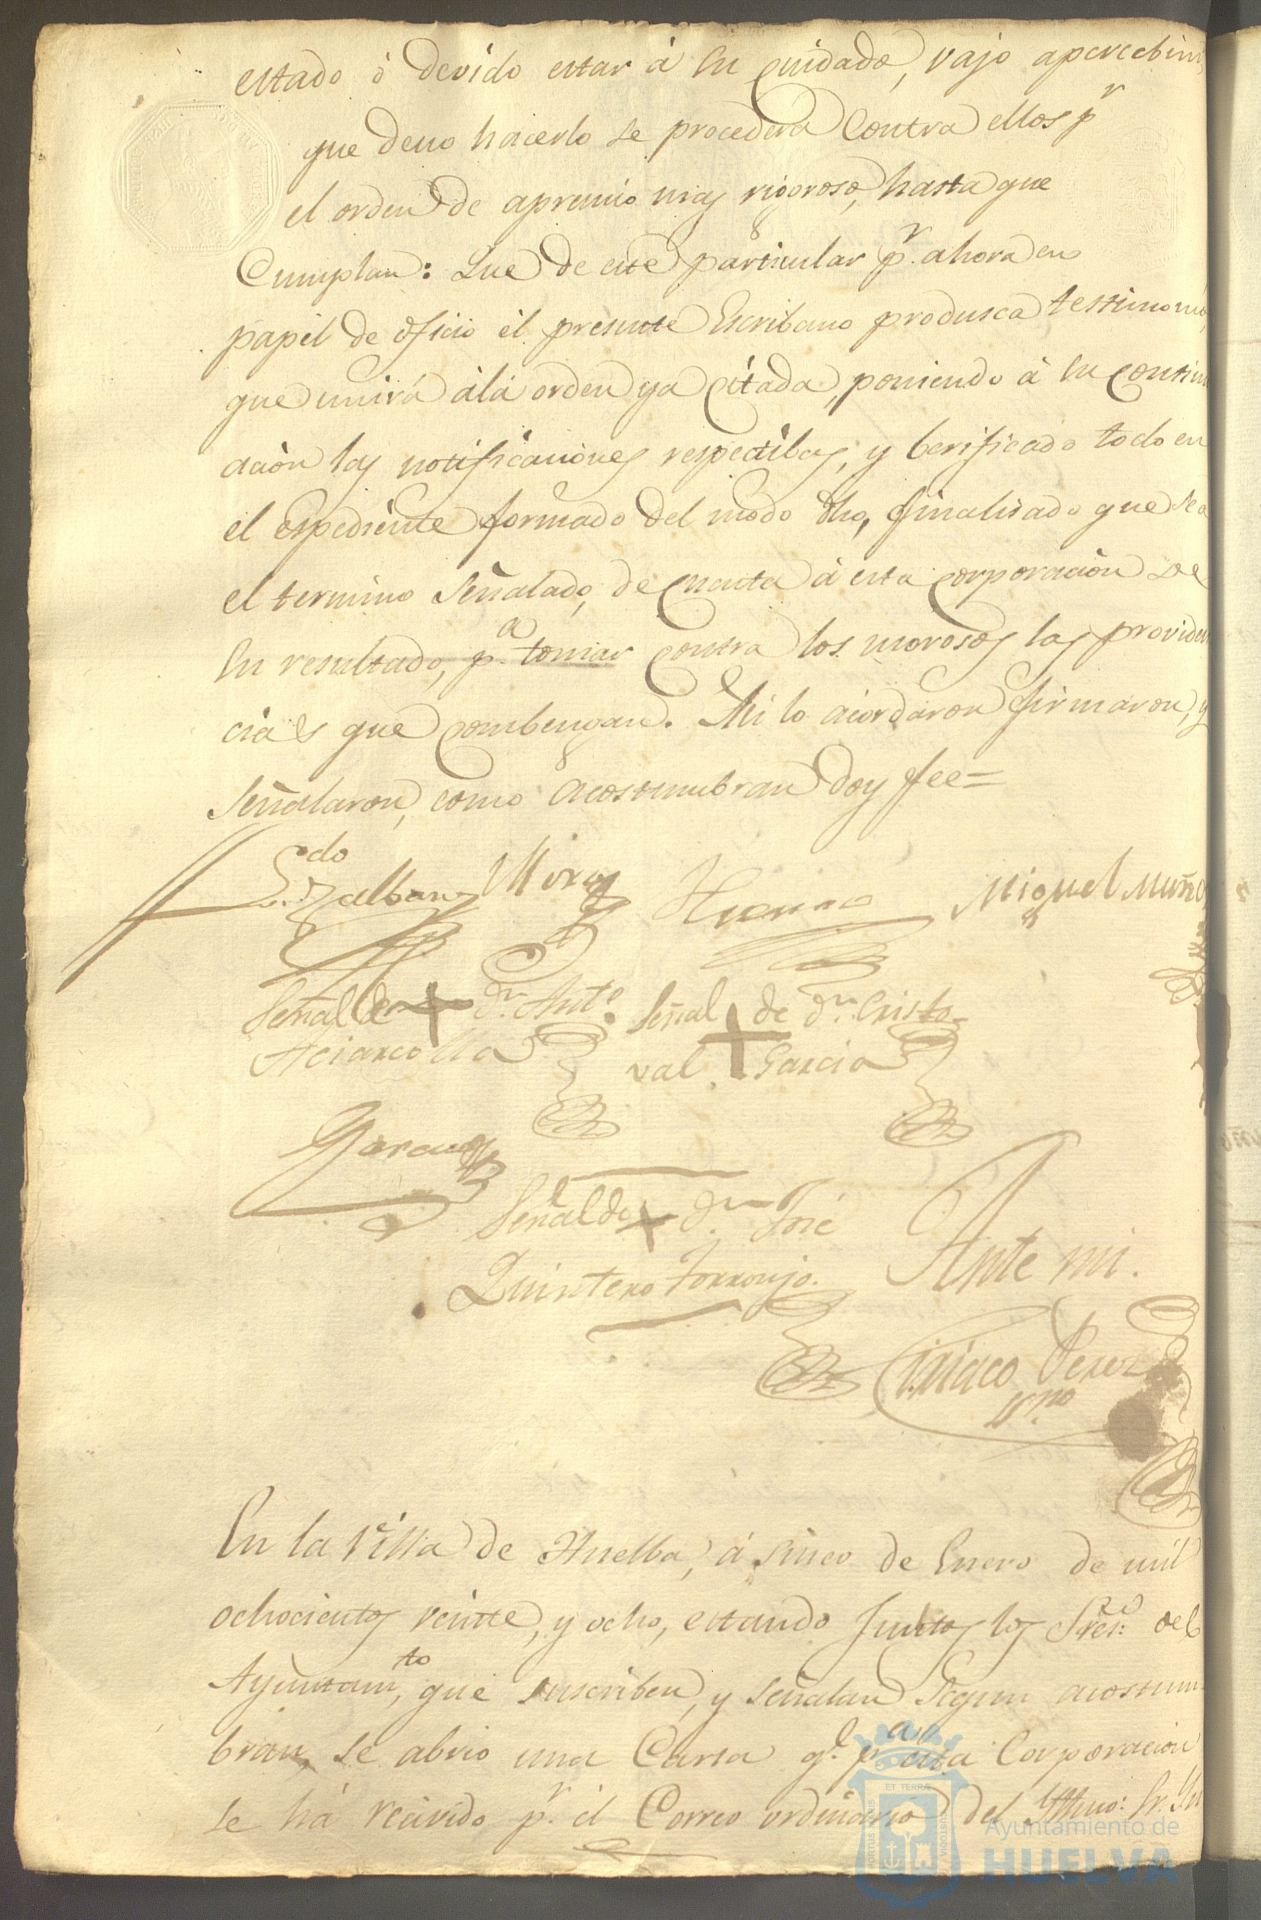 estado ó devido estar á su cuidado, vajo apercebim
que deno hacerlo se procederá contra ellos pr
el orden de apremio mas rigoroso, hasta que
Cumplan: Que de este particular pr. ahora en
papel de oficio el presente Escribano produsca testimonio,
que unirá álá orden ya citada, poniendo á su continu
ación las notificaciones respectibas, y berificado todo en
el espediente formado del modo dho, finalisado que sea
el termino señalado, de cuenta á esta corporación de
su resultado, pa. tomar contra los morosos las providen
cias que combengan. Asi lo acordaron firmaron, y
señalaron, como acostumbran doy fee=
Ldo Miguel Muño
Señal de + dn. Anto. Señal + de dn. Cristo-
val Garcia
Señal de + dn José
Quintero Torronjo. Ante mi.
Ciriaco Perez
En la Villa de Huelba, á sinco de Enero de mil
ochocientos veinte, y ocho, estando Juntos los Sres. del
Ayuntamto, que suscriben, y señalan segun acostum-
bran, se abrio una Carta qe. pa. esta Corporacion
se há recivido pr. el Correo ordinario del Yltmo: Sr. Yn
ET TERRÆ
PORTUS MARIS
CUSTODIA
Ayuntamiento de
HUELVA